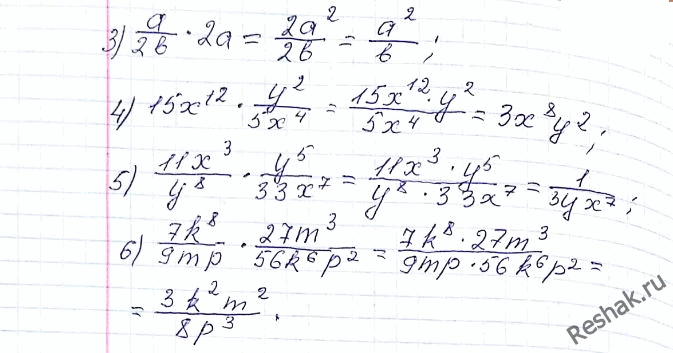 3) a/2b · 2a = 2a²/2b = a²/b ;
4) 15x¹² · y²/5x⁴ = 15x¹² · y²/5x⁴ = 3x⁸y² ;
5) 11x³/y⁸ · y⁵/33x⁷ = 11x³ · y⁵/y⁸ · 33x⁷ = 1/3yx⁷ ;
6) 7k⁸/9mp · 27m³/56k⁶p² = 7k⁸ · 27m³/9mp · 56k⁶p² =
= 3k²m²/8p³ .
Reshak.ru